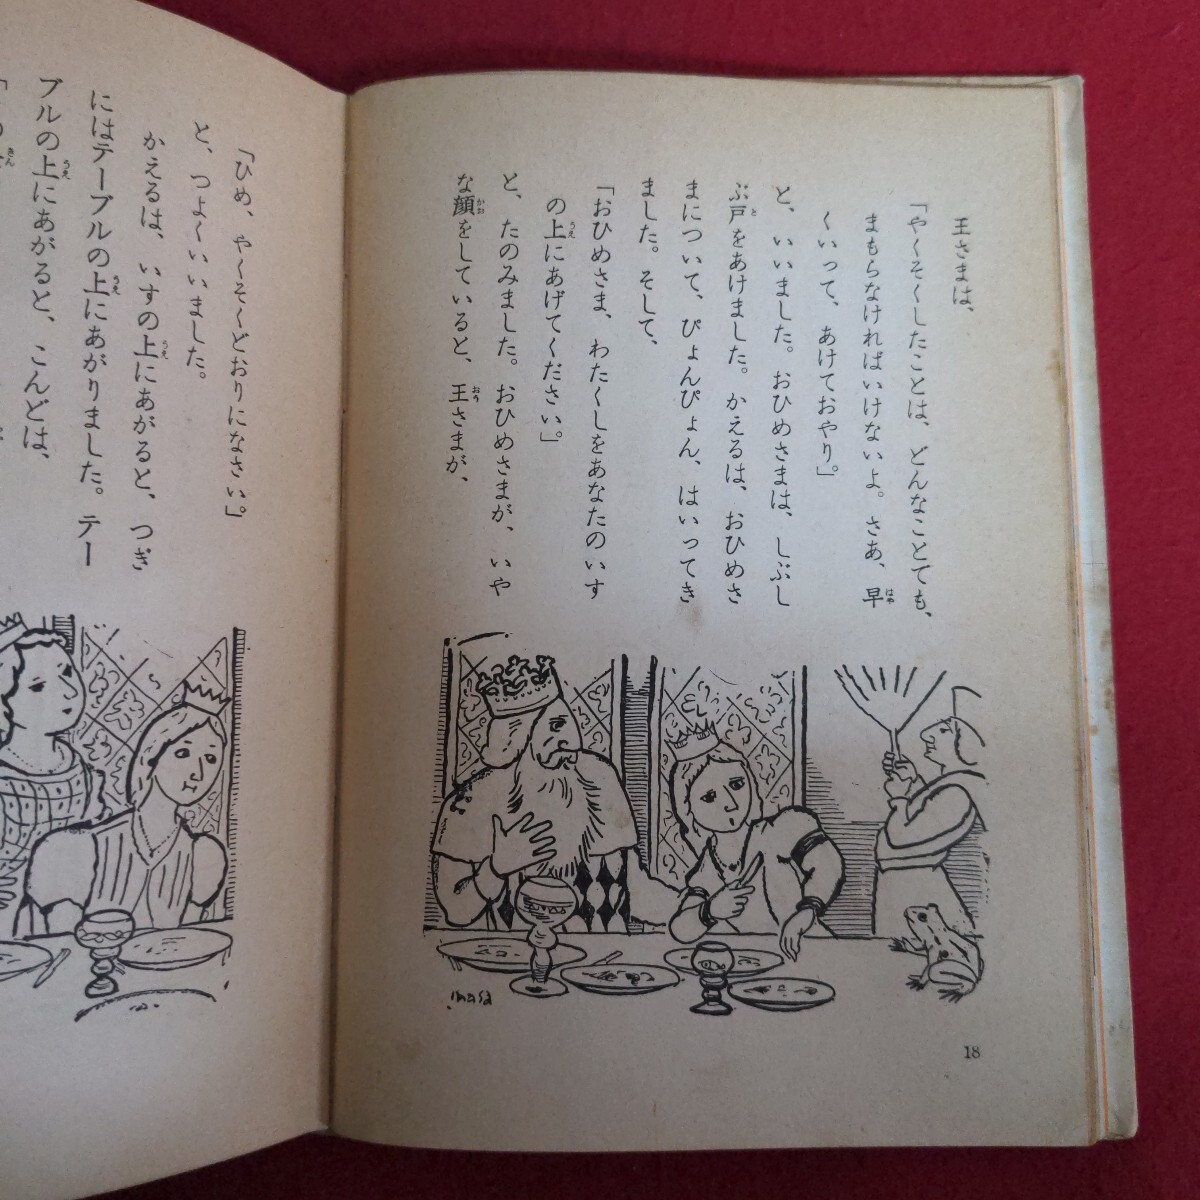 王さまは、
「やくそくしたことは、どんなことでも、
まもらなければいけないよ。さあ、早
くいって、あけておやり」
と、いいました。おひめさまは、しぶし
ぶ戸をあけました。かえるは、おひめさ
まについて、ぴょんぴょん、はいってき
ました。そして、
「おひめさま、わたくしをあなたのいす
の上にあげてください。」
と、たのみました。おひめさまが、いや
な顔をしていると、王さまが、
imasa
18
「ひめ、やくそくどおりになさい。」
と、つよくいいました。
かえるは、いすの上にあがると、つぎ
にはテーブルの上にあがりました。テー
ブルの上にあがると、こんどは、